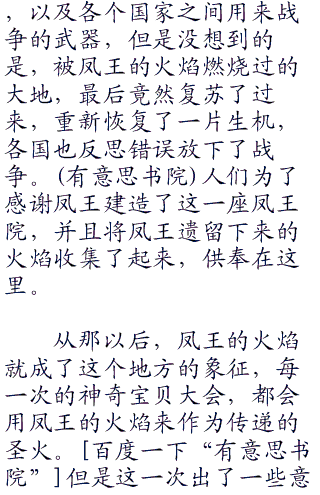 ，以及各个国家之间用来战
争的武器，但是没想到的
是，被凤王的火焰燃烧过的
大地，最后竟然复苏了过
来，重新恢复了一片生机，
各国也反思错误放下了战
争。(有意思书院)人们为了
感谢凤王建造了这一座凤王
院，并且将凤王遗留下来的
火焰收集了起来，供奉在这
里。
从那以后，凤王的火焰
就成了这个地方的象征，每
一次的神奇宝贝大会，都会
用凤王的火焰来作为传递的
圣火。[百度一下“有意思书
院”]但是这一次出了一些意